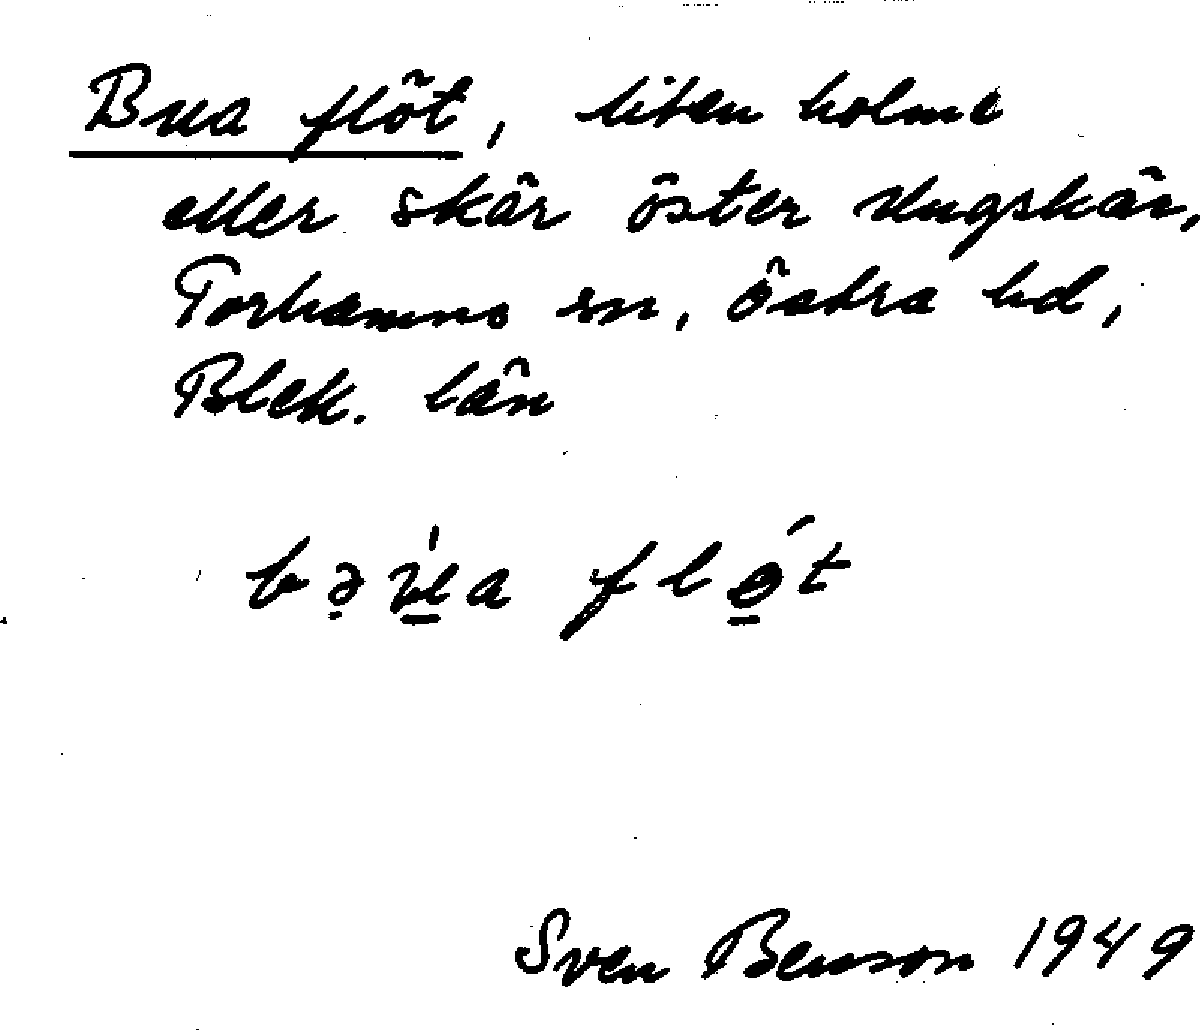 Bua flöt, liten holme
eller skär öster Ungskär,
Torhamns sn, Östra hd,
Blek. län
Sven Benson 1949